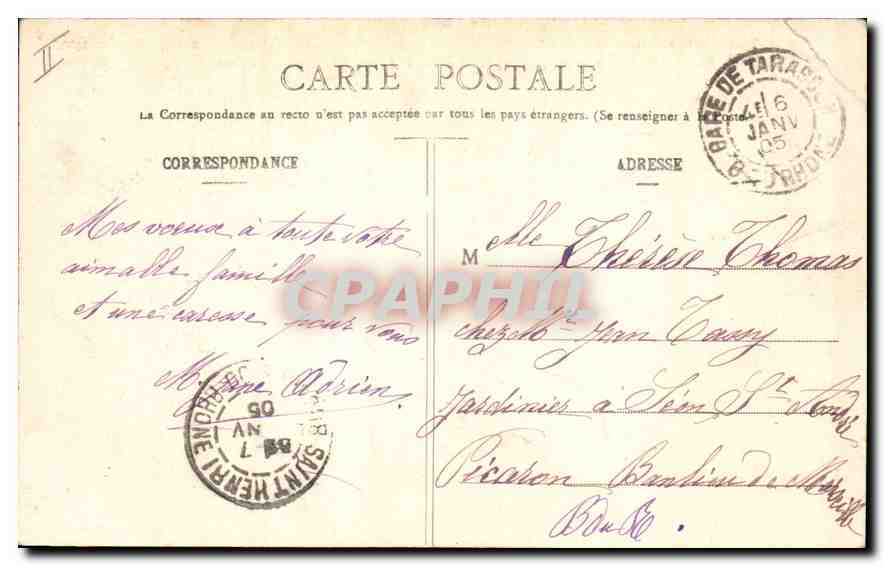 II
CARTE POSTALE
La Correspondance au recto n'est pas acceptée par tous les pays étrangers. (Se renseigner à la Poste
CORRESPONDANCE
Mes voeux à toute votre
aimable famille
et une caresse pour vous
Adrien
ADRESSE
Melle Thérèse Thomas
chez Mr Jean Tassy
Jardinier à Séon St André
Picaron Banlieue de Marseille
B du R.
GARE DE TARASCON
16
JANV
05
RHONE
SAINT HENRI
RHONE
7
NV
05
CPAPHIL